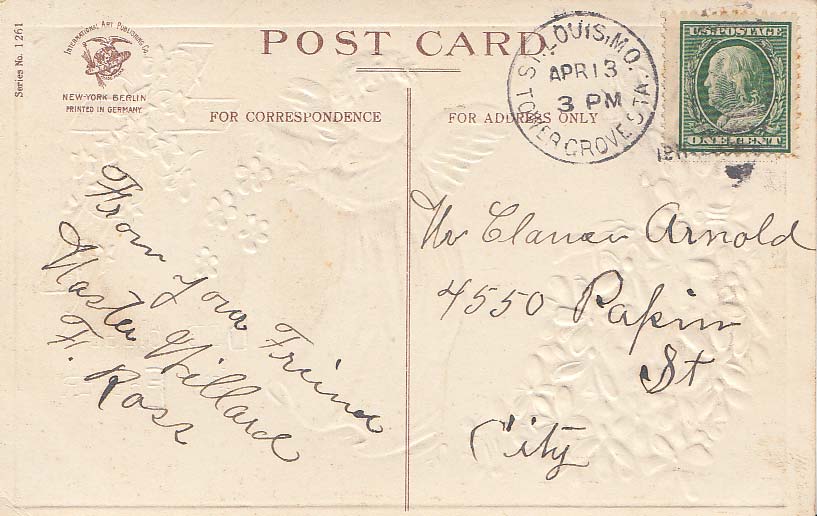 Series No. 1261
INTERNATIONAL ART PUBLISHING CO.
NEW-YORK BERLIN
PRINTED IN GERMANY
POST CARD
FOR CORRESPONDENCE
FOR ADDRESS ONLY
ST. LOUIS, MO.
APR 13
3 PM
TOWER GROVE STA.
U.S. POSTAGE
ONE CENT
From your Friend
Master Willard
F. Ross
Mr Arnold
4550 Papin
St
City